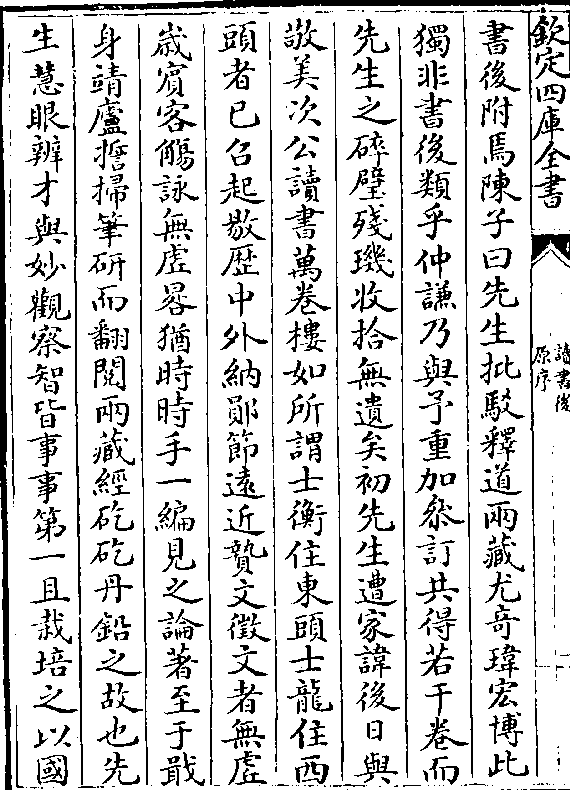 欽定四庫全書
讀書後
原序
書後附焉陳子曰先生批駁釋道兩藏尤奇瑋宏博此
獨非書後類乎仲謙乃與予重加叅訂共得若干卷而
先生之碎璧殘璣收拾無遺矣初先生遭家諱後日與
敬美次公讀書萬卷樓如所謂士衡住東頭士龍住西
頭者已召起敭歴中外納鄖節遠近贄文徵文者無虛
歳賓客觴詠無虛晷猶時時手一編見之論著至于戢
身靖廬擔掃筆研而翻閱兩藏經矻矻丹鉛之故也先
生慧眼辨才與妙觀察智皆事事第一且栽培之以國